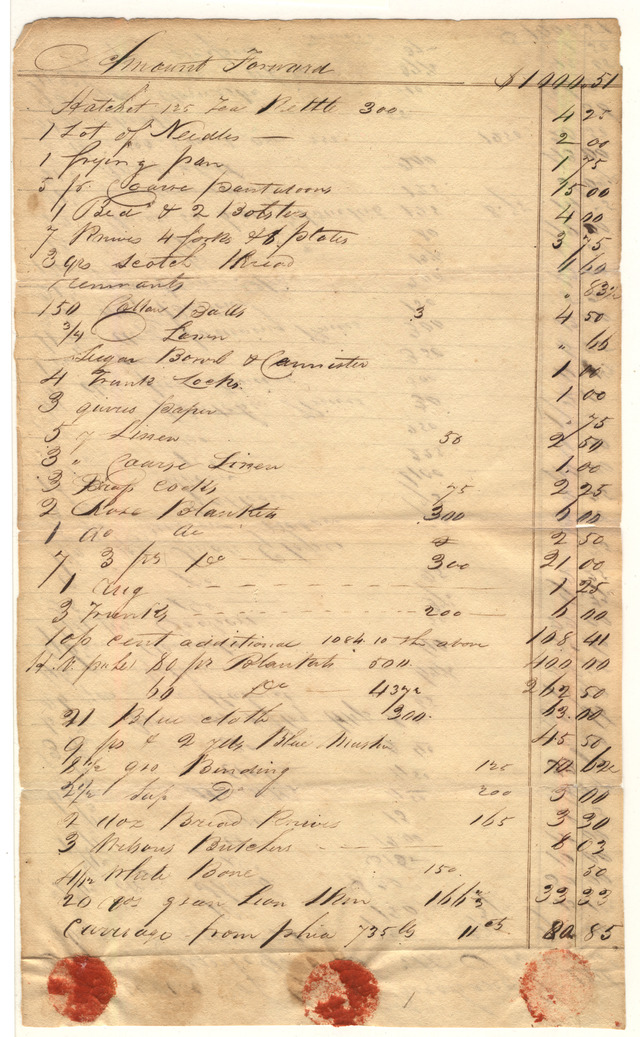 Amount Forward $1000.51
Hatchet 125 Tea Kettle 300 4 25
1 Lot of Needles — 2 00
1 frying pan 1 75
5 pr. Coarse pantaloons 15 00
1 Bed & 2 Bolsters 4 00
7 Knives 4 forks & 6 plates 3 75
3 Scotch thread 1 60
remnants " 83½
150 Balls 3 4 50
3/4 Lawn " 66
Sugar Bowl & Cannister 1 00
4 Trunk Locks 1 00
3 quires paper " 75
5 y Linen 50 2 50
3 " Coarse Linen 1.00
3 Cocks 75 2 25
2 Rose Blankets 300 6 00
1 do do 2 50
7 3 pts do 300 21 00
1 1 25
3 Trunks 200 6 00
10 p cent additional 1084.10 the above 108 41
80 pr Blankets 500 400 00
60 do 437½ 262 50
21 Blue cloth 300 63.00
9 ps & 2 yds Blue Muslin 45 50
gro Binding 125
2½ Sup Do 200 5 00
2 doz Bread Knives 165 3 30
3 Wilsons Butchers 8 03
Whale Bone 150 50
20 166⅔ 33 33
Carriage from phia 735 lb 11 80 85